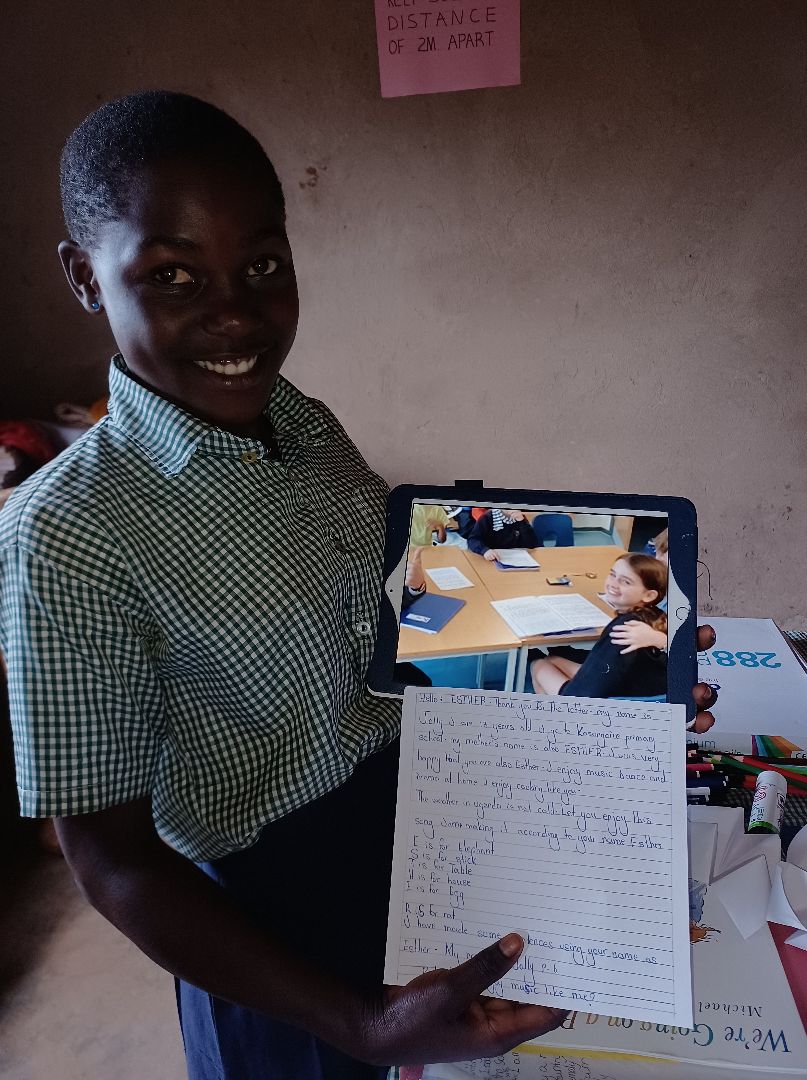 DISTANCE
OF 2M APART
288
Hello ESTHER. Thank you for the letter my name is
Jolly I am 12 years old I go to primary
school. my mother's name is also ESTHER. I was very
happy that you are also Esther. I enjoy music Dance and
Drama at home I enjoy cooking like you.
The weather in uganda is not cold. Let you enjoy this
song I am making it according to your name Esther
E is for Elephant
S is for stick
T is for Table
H is for house
E is for Egg
R is for rat
I have made some using your name as
Esther - My Jolly P.6
music like me?
We're Going on a B
Michael